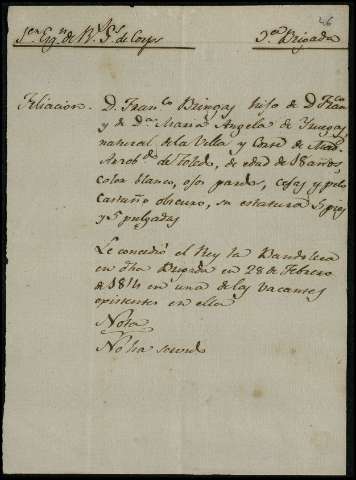 46
1er Esqn de Rs Gs de Corps 3ª Brigada
Filiacion. D. Franco Bringas hijo de D. Franco
y de Dª Maria Angela de
natural de la Villa y Corte de Madd
Arzobdo de Toledo, de edad de 18 años,
color blanco, ojos pardos, cejas y pelo
castaño obscuro, su estatura 5 pies
y 5 pulgadas
Le concedió el Rey la Bandolera
en dha Brigada en 28 de Febrero
de 1816 en una de las Vacantes
existentes en ella
Nota
No ha servido